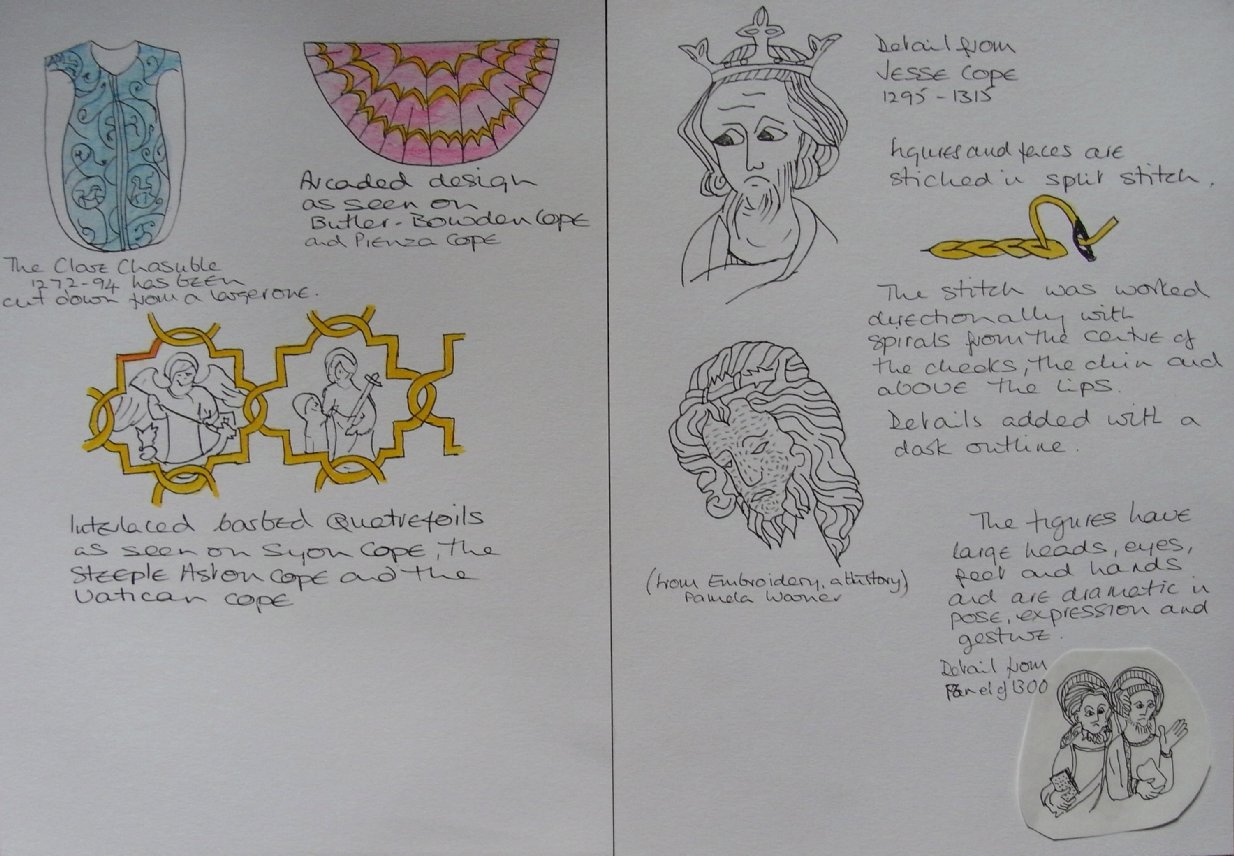 The Clare Chasuble
1272-94 has been
cut down from a larger one.
Arcaded design
as seen on
Butler-Bowden Cope
and Pienza Cope
Interlaced barbed Quatrefoils
as seen on Syon Cope, the
Steeple Aston Cope and the
Vatican cope
Detail from
JESSE COPE
1295-1315
figures and faces are
stiched in split stitch.
The stitch was worked
directionally with
spirals from the centre of
the cheeks, the chin and
above the lips.
Details added with a
dark outline.
(from Embroidery, a History)
Pamela Warner
The figures have
large heads, eyes,
feet and hands
and are dramatic in
pose, expression and
gesture.
Detail from
Panel of 1300